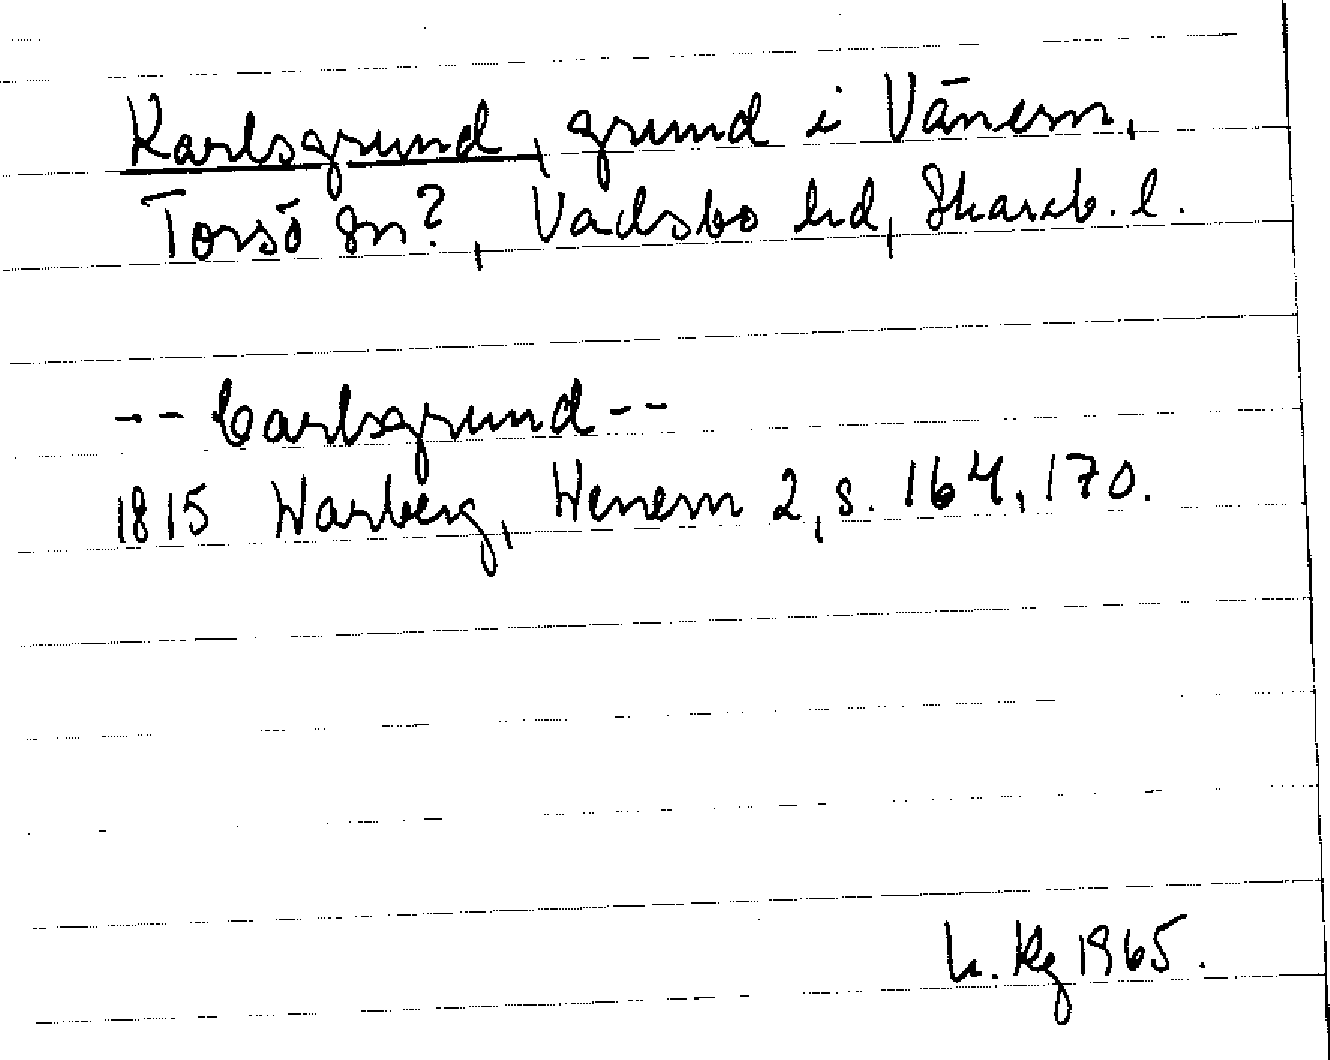 Karlsgrund, grund i Vänern,
Torsö sn?, Vadsbo hd, Skarab. l.
-- Carlsgrund --
1815 Warberg, Wenern 2, s. 164, 170.
h. Kg 1965.